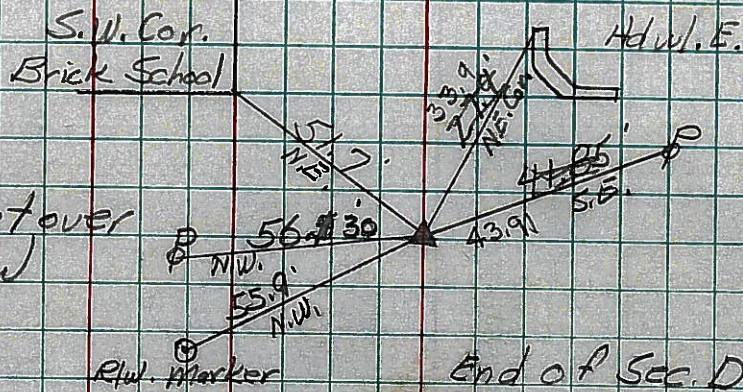 S.W. Cor.
Brick School
Hdwl. E.
33.9'
N.E. Cor.
41.85'
S.E.
43.91
t over
56. 30'
N.W.
55.9'
N.W.
R/W. Marker
End of Sec. D